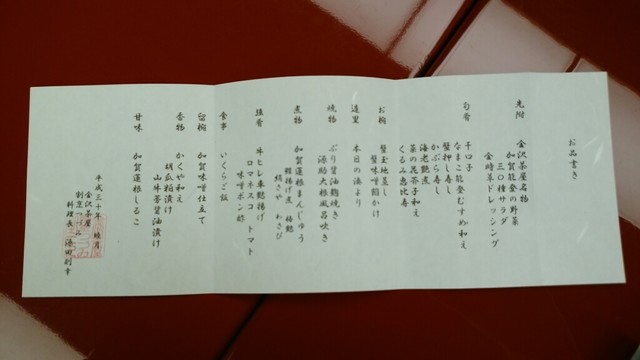 お品書き
先附
金沢茶屋名物
加賀能登の野菜
三〇種サラダ
金時草ドレッシング
旬肴
干口子
なまこ能登むすめ和え
蟹押し寿し
かぶら寿し
海老艶煮
菜の花芥子和え
くるみ恵比寿
お椀
蟹玉地蒸し
蟹味噌餡かけ
造里
本日の湊より
焼物
ぶり醤油麹焼き
源助大根風呂吹き
煮物
加賀蓮根まんじゅう
鰻揚げ煮 梅麩
絹さや わさび
強肴
牛ヒレ車麩揚げ
ロマネスコ トマト
味噌ポン酢
食事
いくらご飯
留椀
加賀味噌仕立て
香物
かくや和え
胡瓜粕漬け
山牛蒡醤油漬け
甘味
加賀蓮根しるこ
平成三十年 睦月
金沢茶屋
割烹つづみ
料理長 湯田則幸